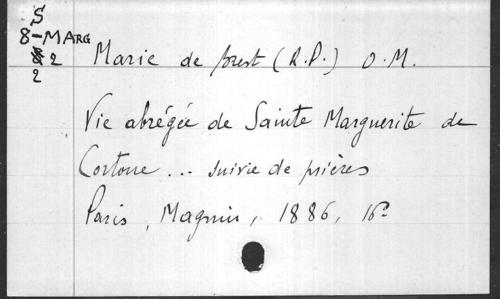 S
8-MARG
2
2
Marie de Brest (R.P.) O.M.
Vie abrégée de Sainte Marguerite de
Cortone ... suivie de prières
Paris, Magnin, 1886, 16º